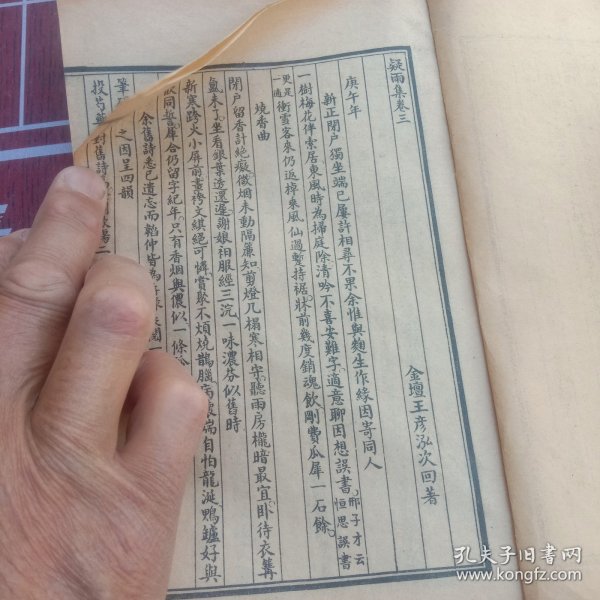 疑雨集卷三
金壇王彥泓次回著
庚午年
新正閉戶獨坐端己屢許相尋不果余惟與麴生作緣因寄同人
一樹梅花伴索居東風時為掃庭除清吟不喜安難字適意聊因想誤書邢子才云思誤書
更是一適衝雪客來仍返棹乘風仙過蹔持裾牀前幾度銷魂飲剛費瓜犀一石餘
燒香曲
閉戶留香計絕癡微烟未動隔簾知剪燈几榻寒相守聽雨房櫳暗最宜卧待衣篝
氣未子坐看銀葉透還遲謝娘袒服經三浣一味濃芬似舊時
新寒跨火小屏前畫袴文綦絕可憐賞歇不煩燒鵲腦病
端自怕龍涎鴨鑪好與
同誓犀合仍留字紀年只有香烟與儂似一條
余舊詩悉已遺忘而韜仲皆為
筆
之因呈四韻
投
對舊詩
孔夫子旧书网
www.kongfz.com